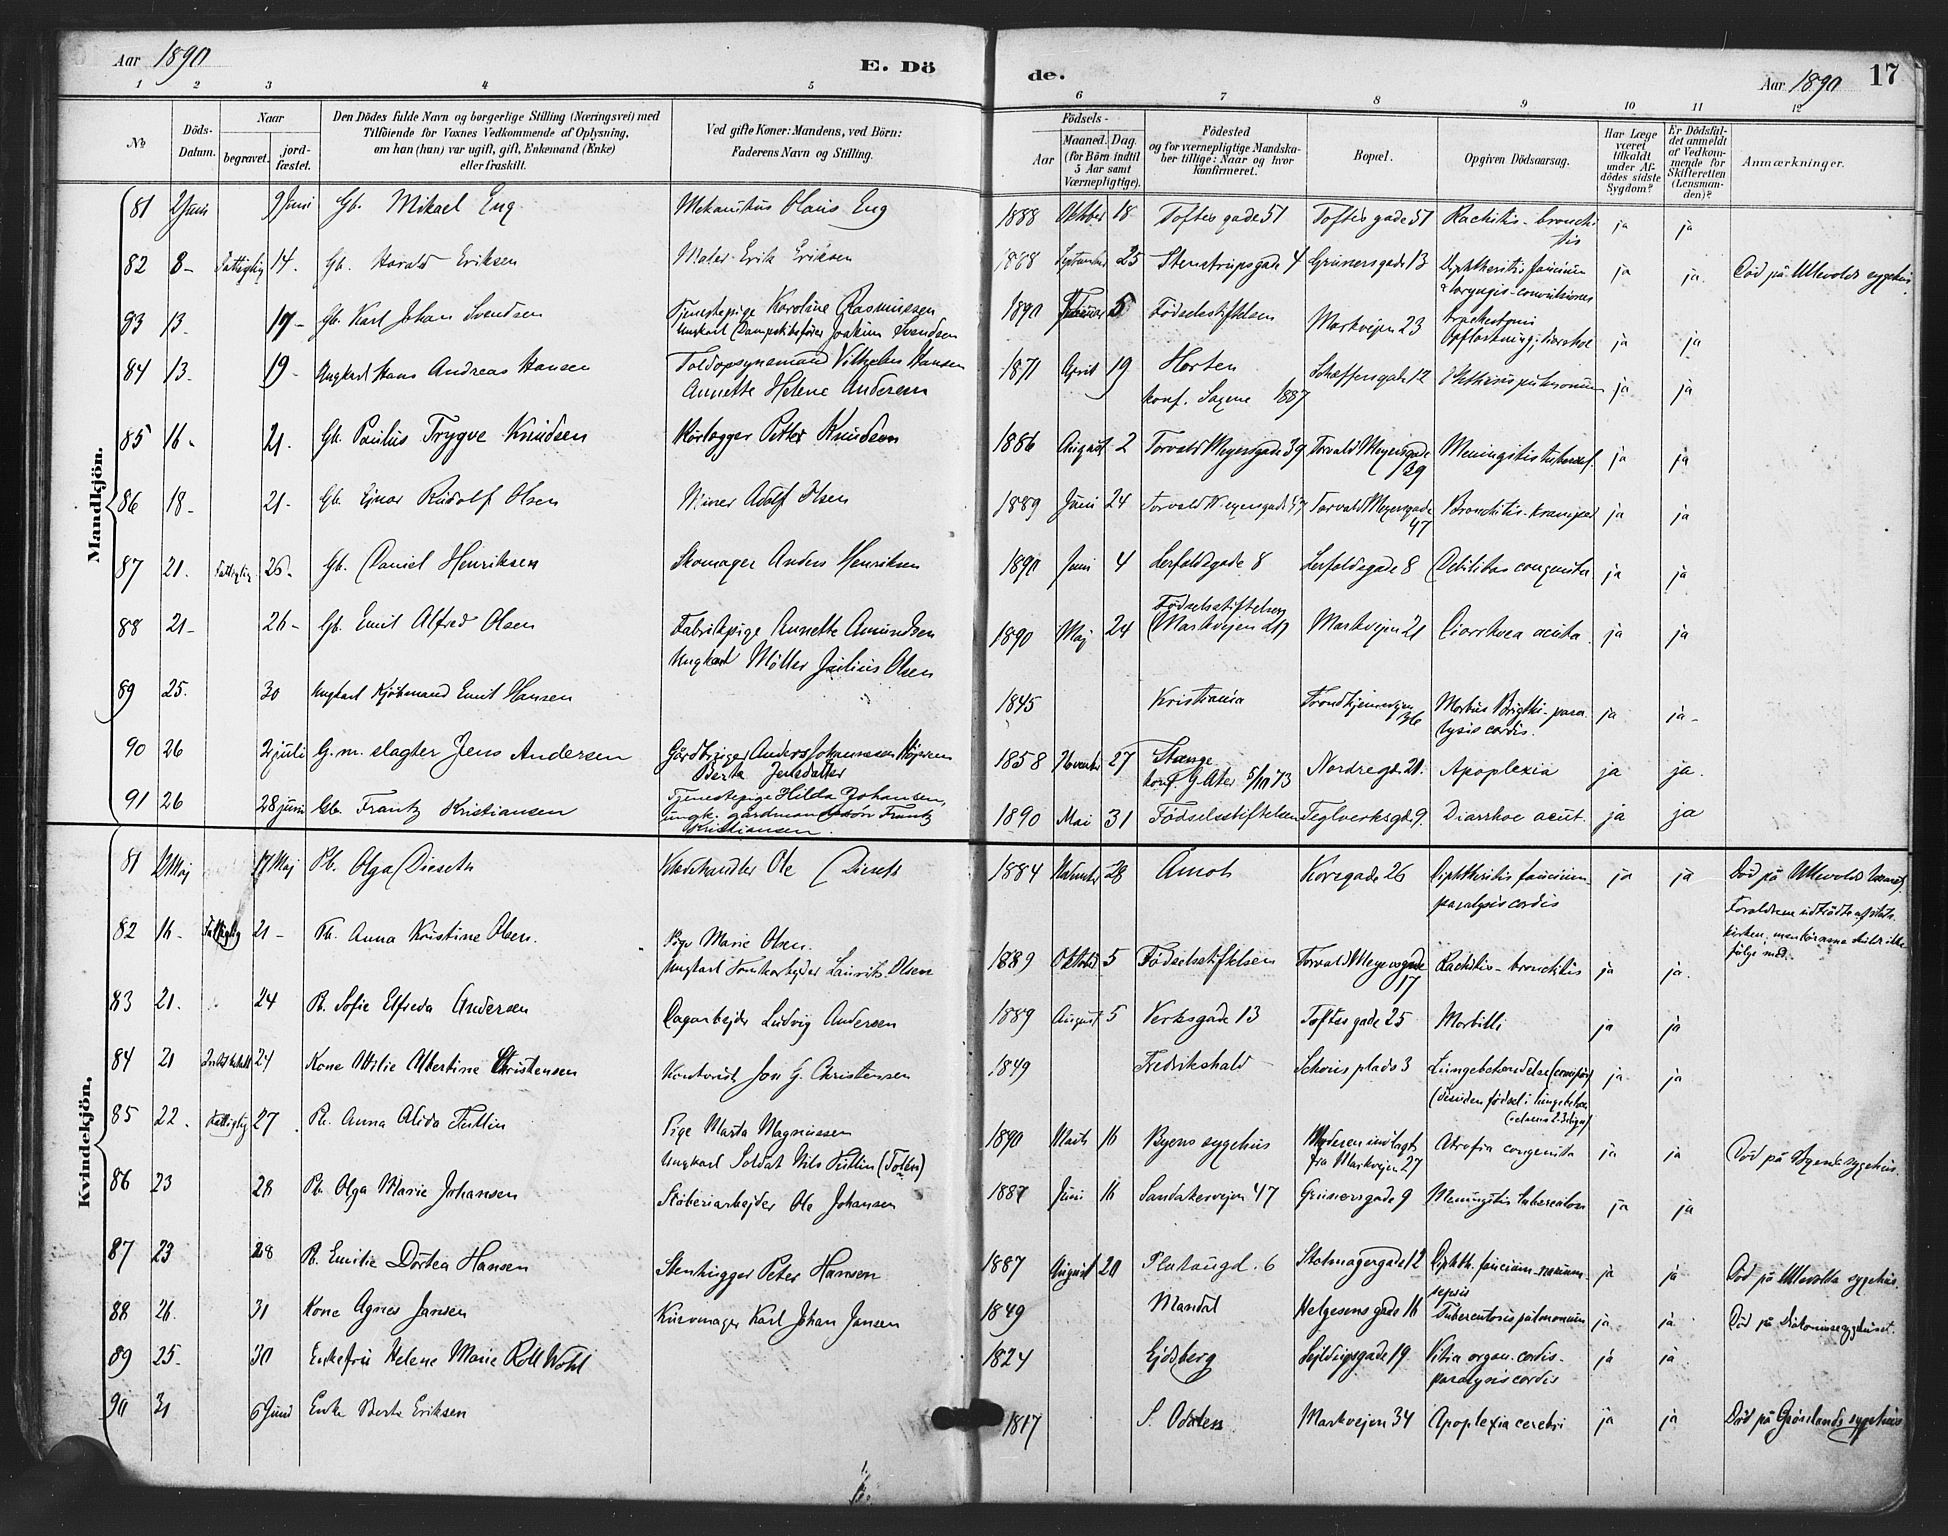 Aar 1890
E. Dö
de.
Aar 1890
17
1 2 3 4 5 6 7 8 9 10 11 12
No
Döds-Datum.
Naar
begravet.
jord-fæstet.
Den Dödes fulde Navn og borgerlige Stilling (Næringsvei) med
Tilföiende for Voxnes Vedkommende af Oplysning,
om han (hun) var ugift, gift, Enkemand (Enke)
eller fraskilt.
Ved gifte Koner: Mandens, ved Börn:
Faderens Navn og Stilling.
Födsels-
Aar
Maaned. Dag.
(for Börn indtil
5 Aar samt
Værnepligtige).
Födested
og for værnepligtige Mandska-
ber tillige: Naar og hvor
konfirmeret.
Bopæl.
Opgiven Dödsaarsag.
Har Læge
været
tilkaldt
under Af-
dödes sidste
Sygdom?
Er Dödsfal-
det anmeldt
af Vedkom-
mende for
Skifteretten
(Lensman-
den)?
Anmærkninger.
Mandkjön.
81 2 Juni 9 Juni Gb. Mikael Eng Mekanikus Olaus Eng 1888 Oktober 18 Toftes gade 51 Toftes gade 51 Rachitis - bronchi
tis ja ja
82 8 - Fattiglig 14. Gb. Harald Eriksen Maler Erik Eriksen 1888 September 25 Stenstrupsgade 4 Grünersgade 13 Diphtheritis faucium
& laryngis - convulsiones ja ja. Död på Ullevolds sygehus.
83 13. 17 - Gb. Karl Johan Svendsen Tjenestepige Karoline Rasmussen
Ungkarl Joakim Svendsen 1890 5 Födselsstiftelsen Markvejen 23 ja ja
84 13. 19 - Ungkarl Hans Andreas Hansen Toldopsynsmand Vilhelm Hansen
Annette Helene Andersen 1871 April 19 Horten
konf. 1887 Schæffersgade 12 Phthisis pulmonum ja ja
85 16 - 21. Gb. Paulus Trygve Knudsen Rörlægger Petter Knudsen 1886 August 2 Torvald Meyersgade 39 Torvald Meyersgade
39 Meningitis tubercul. ja ja
86 18 - 21 - Gb. Ejnar Rudolf Olsen Adolf Olsen 1889 Juni 24 Torvald Meyersgade 47 Torvald Meyersgade
47 Bronchitis - kramper ja ja
87 21. Fattiglig 26 - Gb. Daniel Henriksen Skomager Anders Henriksen 1890 Juni 4 Lerfaldsgade 8 Lerfaldsgade 8 Debilitas congenita ja ja
88 21 - 26 - Gb. Emil Alfred Olsen Fabrikpige Annette Amundsen
Ungkarl Möller Julius Olsen 1890 Maj 24 Födselsstiftelsen
(Markvejen 21) Markvejen 21 Diarrhoea acuta. ja ja
89 25. 30 Ungkarl Kjöbmand Emil Hansen 1845 Kristiania Trondhjemsvejen
36 Morbus Brigthi - para-
lysis cordis. ja ja -
90 26 2 juli G. m. slagter Jens Andersen Gårdbruger Anders Johannessen
Berta Jensdatter 1858 November 27 Stange
konf. 5/10 73 Nordregt. 21. Apoplexia ja ja.
91 26 28 juni Gb. Frantz Kristiansen Tjenestepige Hilda Johansen,
ungk. Frantz
Kristiansen. 1890 Mai 31 Födselsstiftelsen Teglverksgt. 9. Diarrhoe acut. ja ja
Kvindekjön.
81 Maj 17 Maj Pb. Olga Dieseth Ole Dieseth 1884 28 Åmot Korsgade 26 Diphtheritis faucium -
paralysis cordis ja ja Död på Ullevolds
Forældrene udtrådte af stats-
kirken, men
fölge med.
82 16 - Fattiglig 21 - Pb. Anna Kristine Olsen. Pige Marie Olsen.
Ungkarl Laurits Olsen 1889 Oktober 5 Födselsstiftelsen Torvald Meyersgade
17 Rachitis - bronchitis ja ja.
83 21. 24 Pb. Sofie Elfreda Andersen Dagarbejder Ludvig Andersen 1889 August 5 Verksgade 13 Toftes gade 25 Morbilli ja ja
84 21 24 Kone Ottilie Albertine Christensen Kontorist Jon G. Christensen 1849 Fredrikshald Schous plads 3 Lungebetændelse
(desuden födsel i
 ja ja
85 22. Fattiglig 27 Pb. Anna Alida Tutlin Pige Marta Magnussen
Ungkarl Soldat Nils Tutlin (Toten) 1890 Marts 16 Byens sygehus Moderen indlagt
fra Markvejen 27 Atrofia congenita ja ja Död på Byens sygehus.
86 23 28 Pb. Olga Marie Johansen Stöberiarbejder Ole Johansen 1887 Juni 16 Sandakervejen 47 Grünersgade 9 Meningitis tuberculosa ja ja
87 23 28 Pb. Emilie Dortea Hansen Stenhugger Peter Hansen 1887 August 20 Platougd. 6 Stolmagergade 12 Diphth. faucium -
sepsis ja ja Död på Ullevolds sygehus.
88 26. 31 Kone Agnes Jansen Kurvmager Karl Johan Jansen 1849 Mandal Helgesens gade 16 Tuberculosis pulmonum ja ja. Död på Diakonissesygehuset.
89 25 - 30 Enkefru Helene Marie Roll Wohl 1824 Ejdsberg Sejldugsgade 19 Vitia organ. cordis -
paralysis cordis ja ja
90 31 6 Juni Enke Berte Eriksen 1817 S. Odalen Markvejen 34 Apoplexia cerebri ja ja Död på Grönlands sygehus